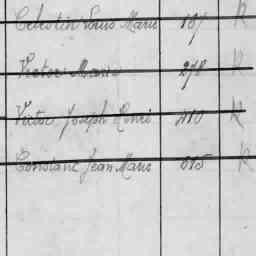 Celestin Louis Marie 187 R
Victor Marie 278 R
Victor Joseph Henri 410 R
Constant Jean Marie 615 R